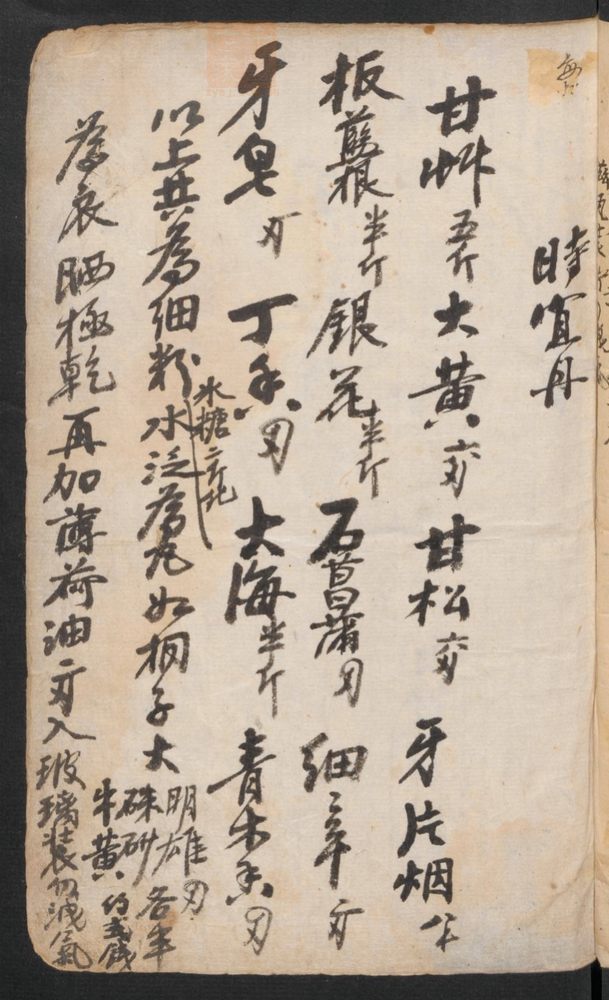 時宜丹
甘艸 五斤 大黃 甘松 牙片烟
板藍根 半斤 銀花 半斤 石菖蒲 刄 細辛
牙皂 丁香 刄 大海 半斤 青木香 刄
以上共為細粉水泛為丸如桐子大 明雄 刄
冰糖二斤化
硃砂 各半
牛黃
為衣 晒極乾 再加薄荷油 入玻璃裝勿洩氣